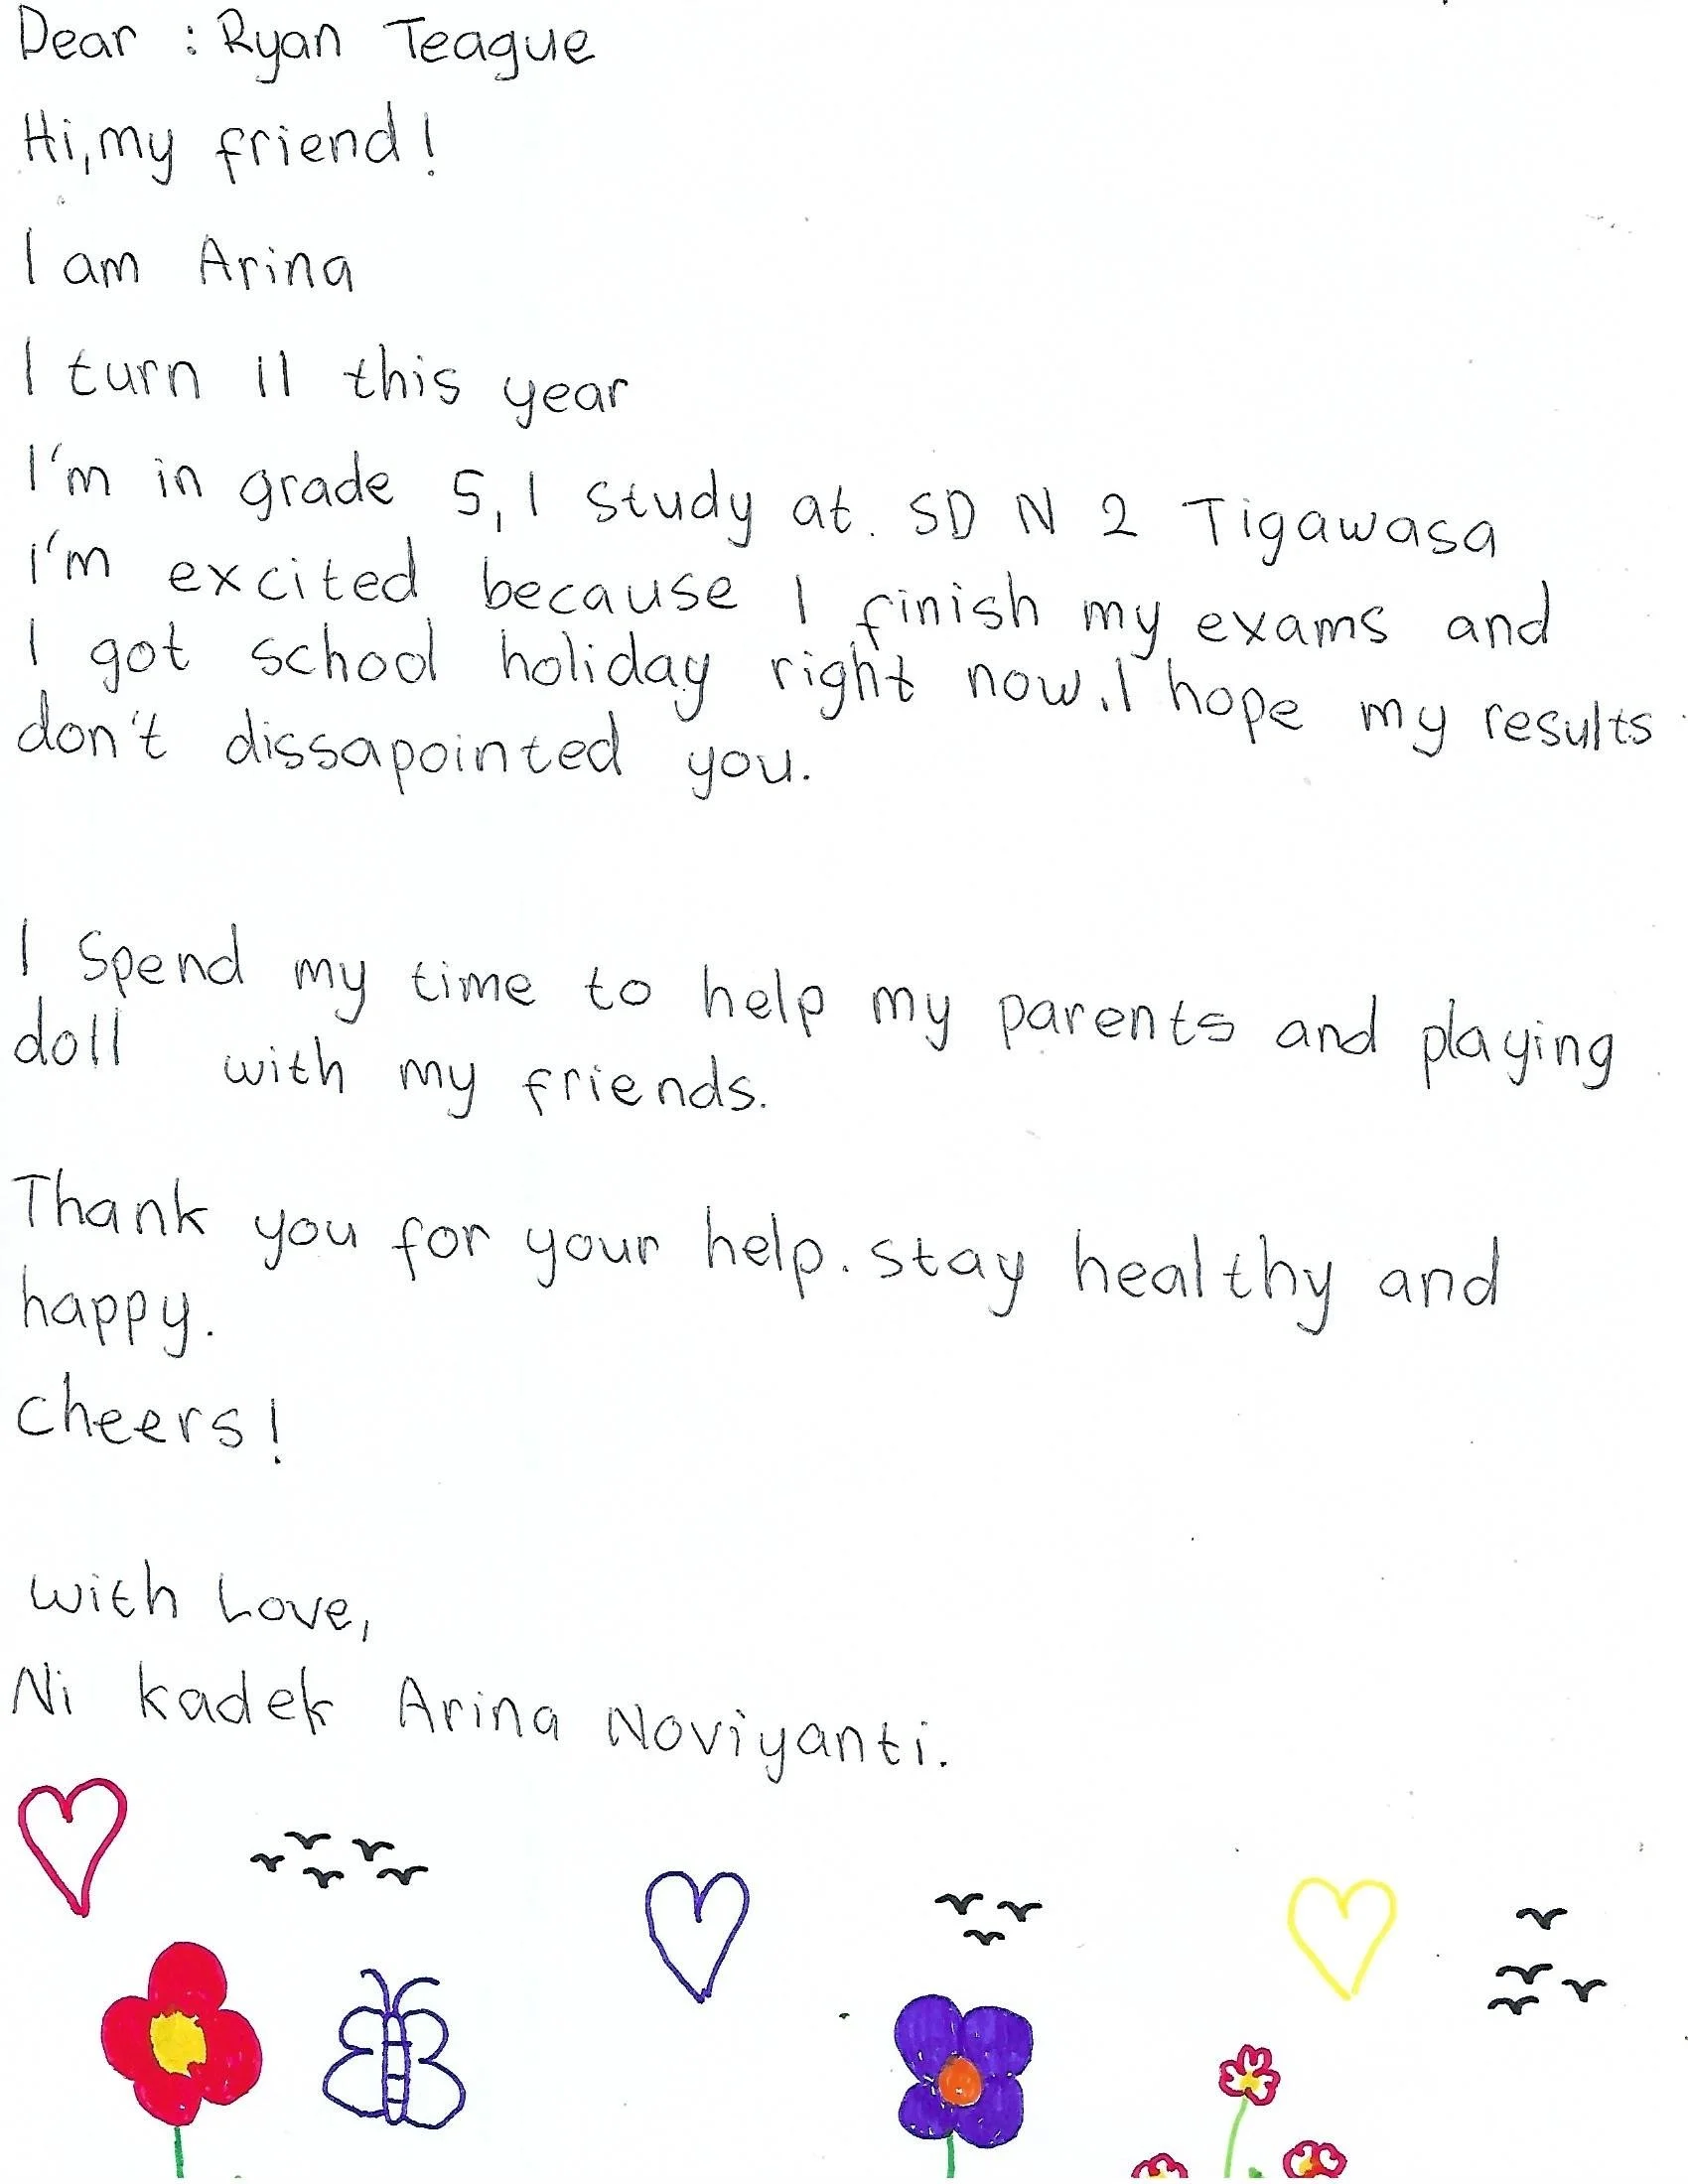 Dear : Ryan Teague
Hi, my friend!
I am Arina
I turn 11 this year
I'm in grade 5, I study at. SD N 2 Tigawasa
I'm excited because I finish my exams and
I got school holiday right now. I hope my results
don't dissapointed you.
I Spend my time to help my parents and playing
doll with my friends.
Thank you for your help. stay healthy and
happy.
cheers!
with Love,
Ni kadek Arina Noviyanti.